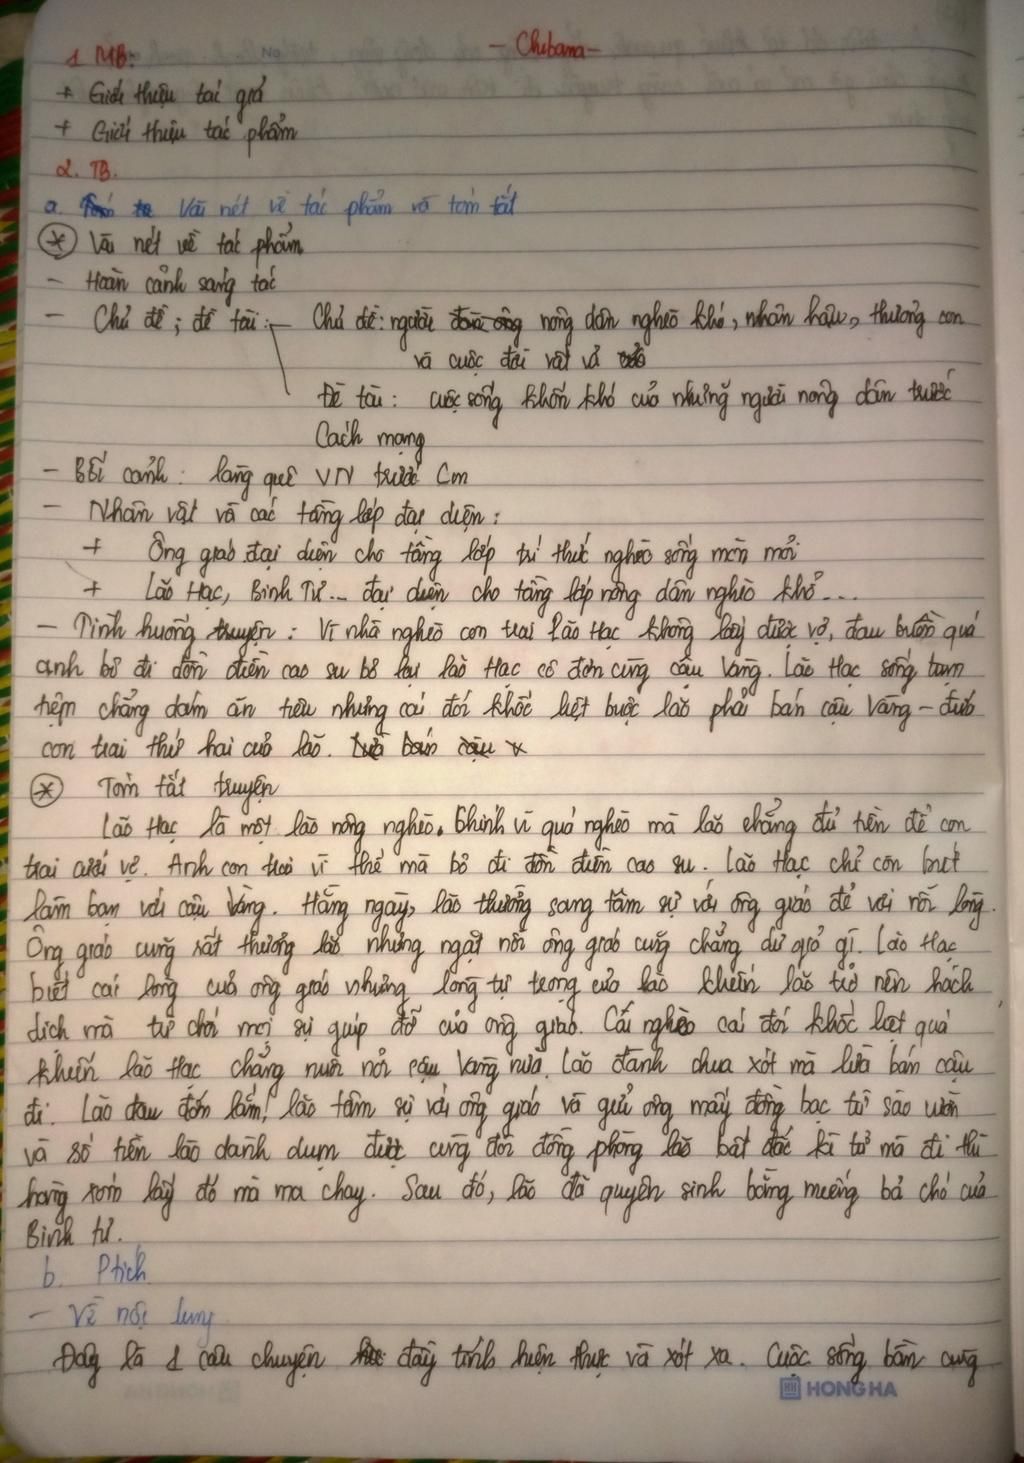 - Chibana -
1 MB:
+ Giới thiệu tác giả
+ Giới thiệu tác phẩm
2. TB.
a. Vài nét về tác phẩm và tóm tắt
* Vài nét về tác phẩm
- Hoàn cảnh sáng tác
- Chủ đề; đề tài: Chủ đề: người nông dân nghèo khó, nhân hậu, thương con
và cuộc đời vất vả
Đề tài: cuộc sống khốn khó của những người nông dân trước
Cách mạng
- Bối cảnh: làng quê VN trước Cm
- Nhân vật và các tầng lớp đại diện:
+ Ông giáo đại diện cho tầng lớp trí thức nghèo sống mòn mỏi
+ Lão Hạc, Binh Tư... đại diện cho tầng lớp nông dân nghèo khổ...
- Tình huống truyện: Vì nhà nghèo con trai Lão Hạc không lấy được vợ, đau buồn quá
anh bỏ đi đồn điền cao su bỏ lại lão Hạc cô đơn cùng cậu Vàng. Lão Hạc sống tằn
tiện chẳng dám ăn tiêu nhưng cái đói khốc liệt buộc lão phải bán cậu Vàng - đứa
con trai thứ hai của lão.
* Tóm tắt truyện
Lão Hạc là một lão nông nghèo. Chính vì quá nghèo mà lão chẳng đủ tiền để con
trai cưới vợ. Anh con trai vì thế mà bỏ đi đồn điền cao su. Lão Hạc chỉ còn biết
làm bạn với cậu Vàng. Hằng ngày, lão thường sang tâm sự với ông giáo để vơi nỗi lòng.
Ông giáo cũng rất thương lão nhưng ngặt nỗi ông giáo cũng chẳng dư giả gì. Lão Hạc
biết cái lòng của ông giáo nhưng lòng tự trọng của lão khiến lão trở nên hách
dịch mà từ chối mọi sự giúp đỡ của ông giáo. Cái nghèo cái đói khốc liệt quá
khiến lão Hạc chẳng nuôi nổi cậu Vàng nữa. Lão đành chua xót mà lừa bán cậu
đi. Lão đau đớn lắm! lão tâm sự với ông giáo và gửi ông mấy đồng bạc từ sào vườn
và số tiền lão dành dụm được cùng đôi đồng phòng lão bất đắc kì tử mà đi thì
hàng xóm lấy đó mà ma chay. Sau đó, lão đã quyên sinh bằng miếng bả chó của
Binh tư.
b. Ptích
- Về nội dung
Đây là 1 câu chuyện đầy tính hiện thực và xót xa. Cuộc sống bần cùng
HONG HA